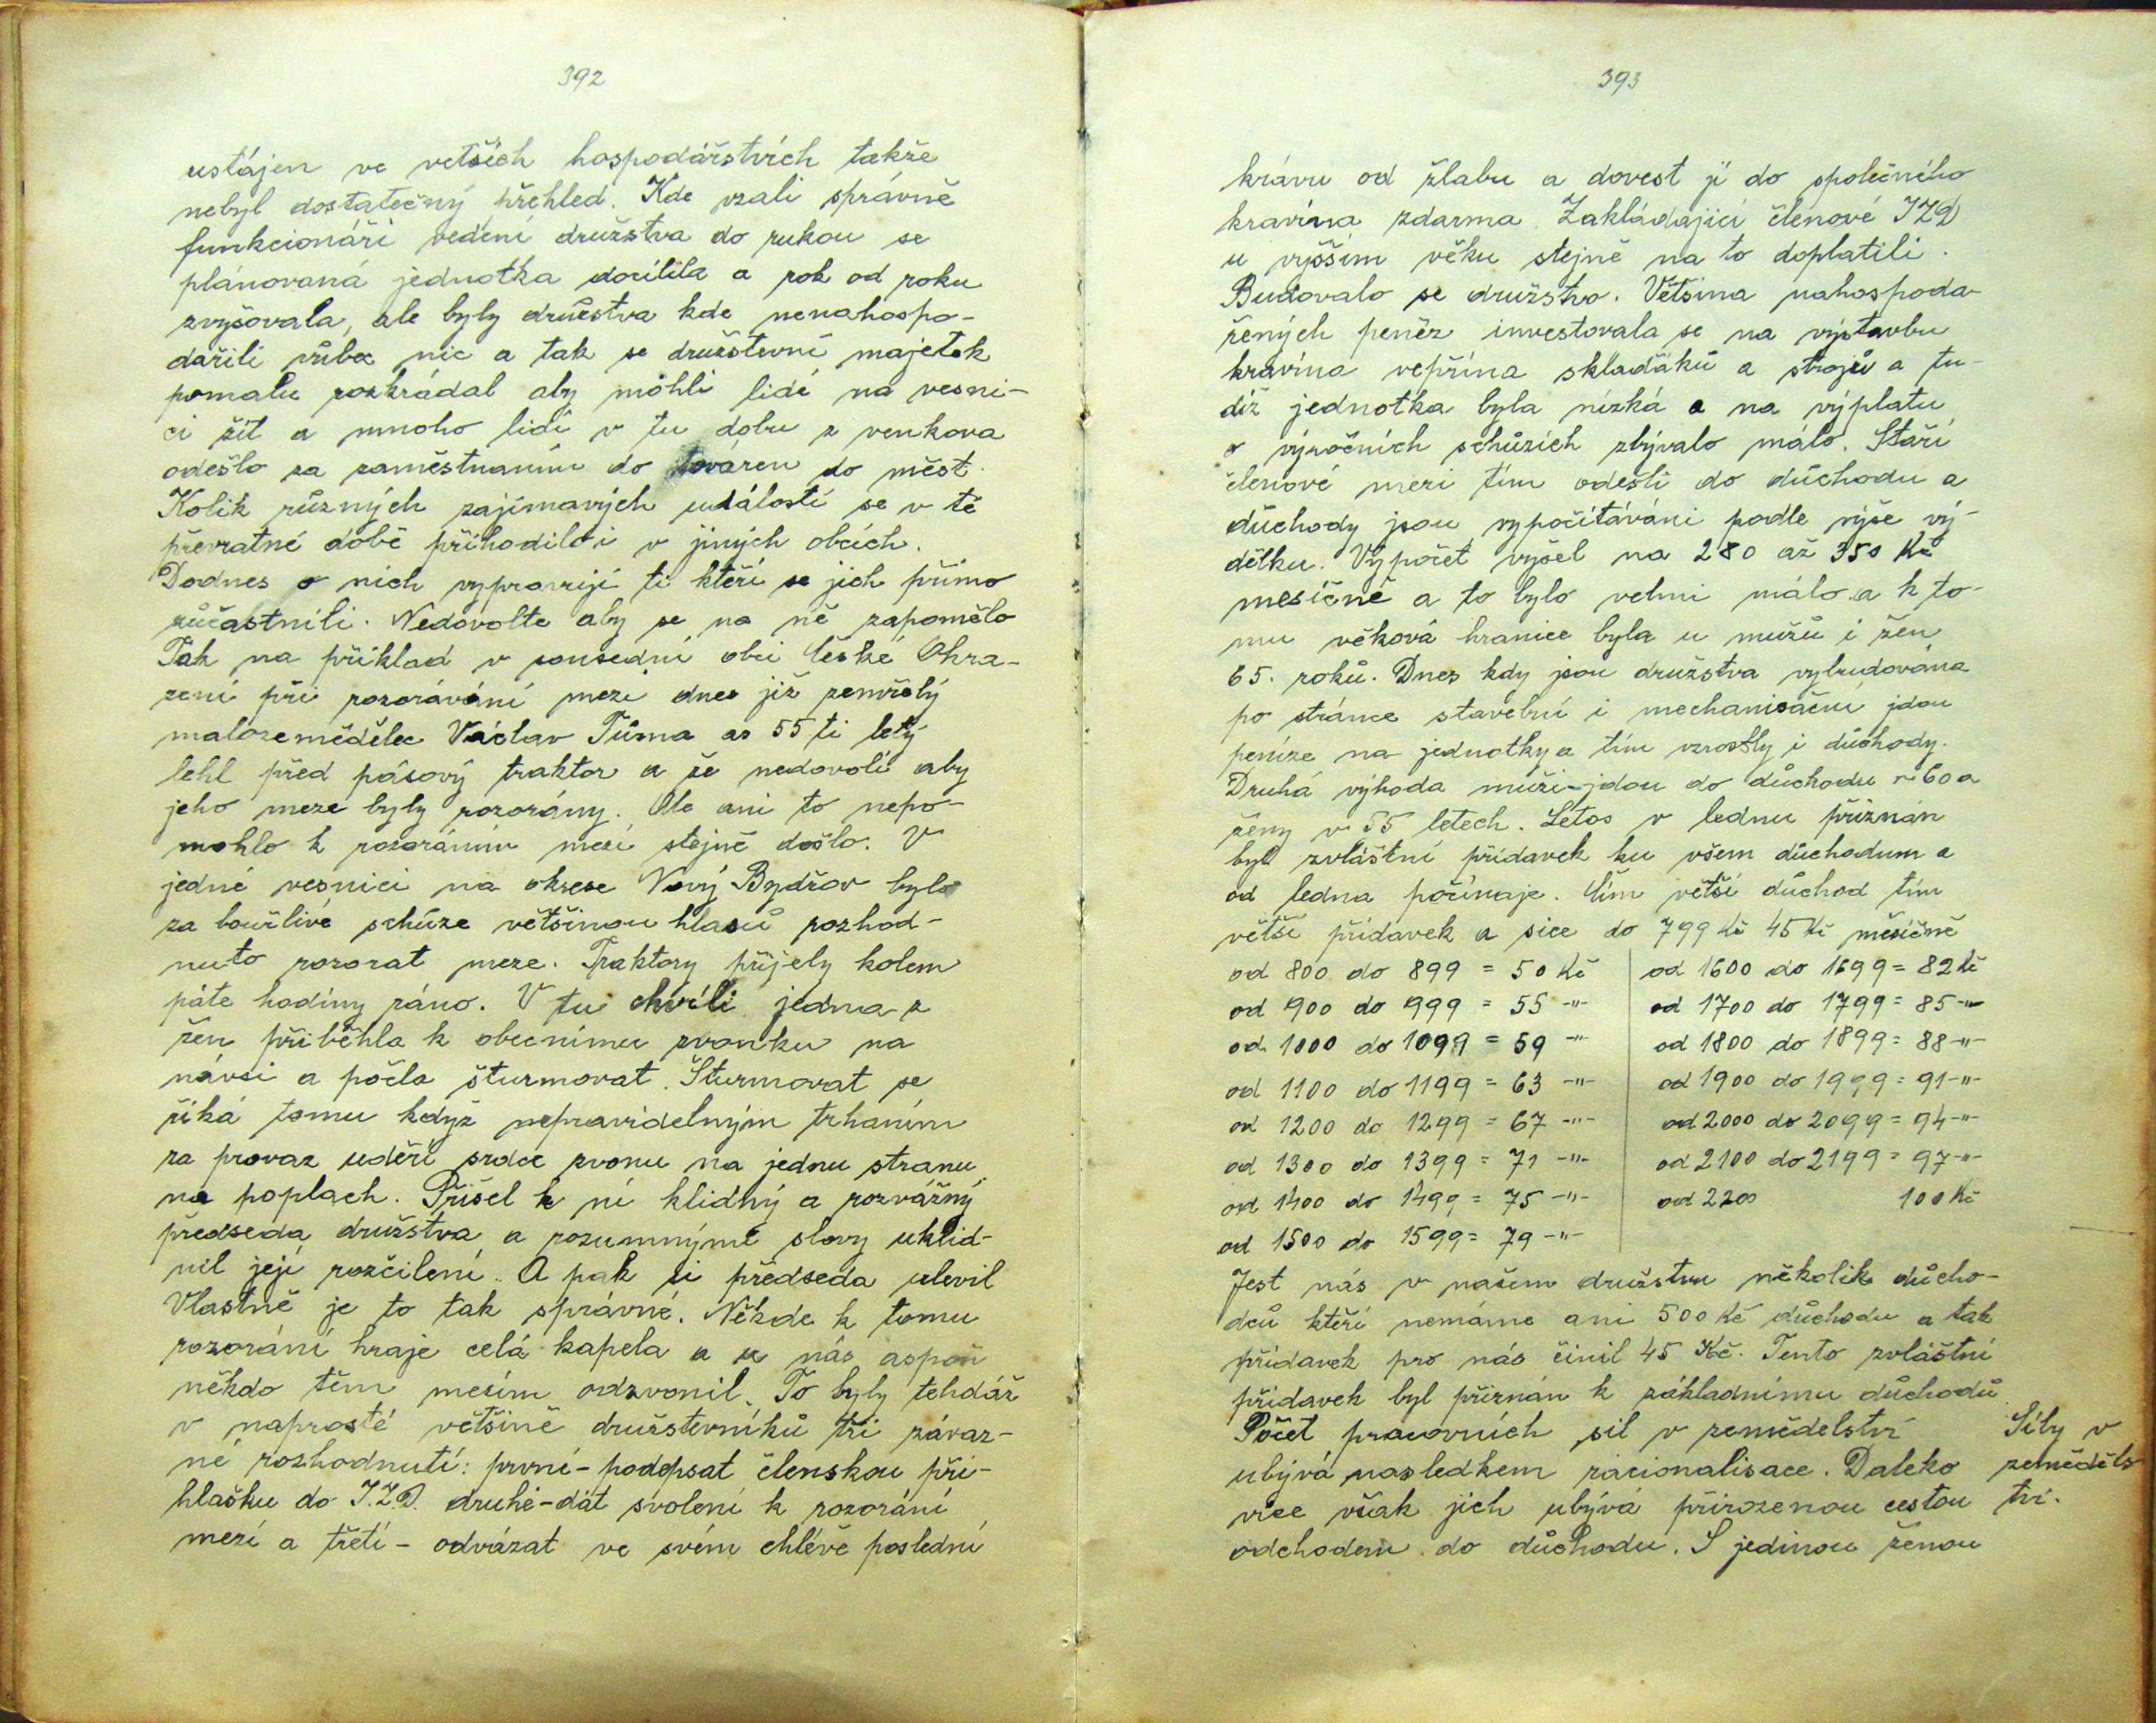 392
ustájen ve vetších hospodářstvích takže
nebyl dostatečný přehled. Kde vzali správně
funkcionáři vedení družstva do rukou se
plánovaná jednotka docílila a rok od roku
zvyšovala, ale byly družstva kde nenahospo-
dařili vůbec nic a tak se družstevní majetek
pomalu rozkrádal aby mohli lidé na vesni-
ci žít a mnoho lidí v tu dobu z venkova
odešlo za zaměstnaním do továren do měst.
Kolik různých zajímavých událostí se v té
převratné době přihodilo i v jiných obcích.
Dodnes o nich vypravují ti kteří se jich přímo
zůčastnili. Nedovolte aby se na ně zapomělo
Tak na příklad v sousední obci České Ohra-
zení při rozorávání mezí dnes již zemřelý
malozemědělec Václav Tůma as 55 ti letý
lehl před pásový traktor a že nedovolí aby
jeho meze byly rozorány. Ale ani to nepo-
mohlo k rozoráním mezí stejně došlo. V
jedné vesnici na okrese Nový Bydžov bylo
za bouřlivé schůze většinou hlasů rozhod-
nuto rozorat meze. Traktory přijely kolem
páte hodiny ráno. V tu chvíli jedna z
žen přiběhla k obecnímu zvonku na
návsi a počla šturmovat. Šturmovat se
říká tomu když nepravidelným trhaním
za provaz udeří srdce zvonu na jednu stranu
na poplach. Přišel k ní klidný a rozvážný
předseda družstva a rozumnými slovy uklid-
nil její rozčilení. A pak si předseda ulevil
Vlastně je to tak správné. Někde k tomu
rozorání hraje celá kapela a u nás aspoň
někdo těm mezím odzvonil. To byly tehdáž
v naprosté většině družstevníků tři závaz-
né rozhodnutí: první - podepsat členskou při-
hlašku do J.Z.D. druhé - dát svolení k rozorání
mezí a třetí - odvázat ve svém chlévě poslední
393
krávu od žlabu a dovest ji do společného
kravína zdarma. Zakládající členové JZD
u vyšším věku stejně na to doplatili.
Budovalo se družstvo. Většina nahospoda-
řených peněz investovala se na výstavbu
kravína vepřína skladáků a strojů a tu-
díž jednotka byla nízká a na výplatu
o výročních schůzích zbývalo málo. Staří
členové mezi tím odešli do důchodu a
důchody jsou vypočítáváni podle výše vý-
dělku. Výpočet vyšel na 280 až 350 Kč
mesíčně a to bylo velmi málo a k to-
mu věková hranice byla u mužů i žen
65. roků. Dnes kdy jsou družstva vybudována
po stránce stavební i mechanisační jdou
peníze na jednotky a tím vzrostly i důchody.
Druhá výhoda muži jdou do důchodu v 60 a
ženy v 55 letech. Letos v lednu přiznán
byl zvláštní přídavek ku všem důchodum a
od ledna počínaje. Čím větší důchod tím
větší přídavek a sice do 799 Kč 45 Kč měsíčně
od 800 do 899 = 50 Kč
od 900 do 999 = 55 -"-
od 1000 do 1099 = 59 -"-
od 1100 do 1199 = 63 -"-
od 1200 do 1299 = 67 -"-
od 1300 do 1399 = 71 -"-
od 1400 do 1499 = 75 -"-
od 1500 do 1599 = 79 -"-
od 1600 do 1699 = 82 Kč
od 1700 do 1799 = 85 -"-
od 1800 do 1899 = 88 -"-
od 1900 do 1999 = 91 -"-
od 2000 do 2099 = 94 -"-
od 2100 do 2199 = 97 -"-
od 2200 100 Kč
Jest nás v našem družstvu několik důcho-
dců kteří nemáme ani 500 Kč důchodu a tak
přídavek pro nás činil 45 Kč. Tento zvláštní
přídavek byl přiznán k základnímu důchodů
Počet pracovních sil v zemědelství
ubývá nasledkem racionalisace. Daleko
více však jich ubývá přirozenou cestou
odchodem do důchodu. S jedinou ženou
Síly v
zeměděls
tví.